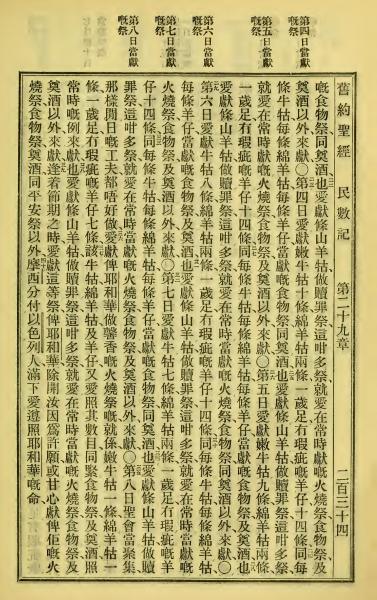 第四日當獻嘅祭
第五日當獻嘅祭
第六日當獻嘅祭
第七日當獻嘅祭
第八日當獻嘅祭
舊約聖經　民數記　第二十九章　二百三十四
嘅食物祭同奠酒也愛獻條山羊牯做贖罪祭這咁多祭就愛在常時獻嘅火燒祭食物祭及
奠酒以外來獻〇第四日愛獻嫩牛牯十條綿羊牯兩條一歲足冇瑕疵嘅羊仔十四條同每
條牛牯每條綿羊牯每條羊仔當獻嘅食物祭同奠酒也愛獻條山羊牯做贖罪祭這咁多祭
就愛在常時獻嘅火燒祭食物祭及奠酒以外來獻〇第五日愛獻嫩牛牯九條綿羊牯兩條
一歲足冇瑕疵嘅羊仔十四條同每條牛牯每條綿羊牯每條羊仔當獻嘅食物祭同奠酒也
愛獻條山羊牯做贖罪祭這咁多祭就愛在常時當獻嘅火燒祭食物祭同奠酒以外來獻〇
第六日愛獻牛牯八條綿羊牯兩條一歲足冇瑕疵嘅羊仔十四條同每條牛牯每條綿羊牯
每條羊仔當獻嘅食物祭及奠酒也愛獻條山羊牯做贖罪祭這咁多祭就愛在常時當獻嘅
火燒祭食物祭及奠酒以外來獻〇第七日愛獻牛牯七條綿羊牯兩條一歲足冇瑕疵嘅羊
仔十四條同每條牛牯每條綿羊牯每條羊仔當獻嘅食物祭同奠酒也愛獻條山羊牯做贖
罪祭這咁多祭就愛在常時當獻嘅火燒祭食物祭及奠酒以外來獻〇第八日聖會當聚集
那樣閒日嘅工夫都唔好做愛獻俾耶和華做馨香嘅火燒祭嘅就係嫩牛牯一條綿羊牯一
條一歲足冇瑕疵嘅羊仔七條該牛牯綿羊牯及羊仔又愛照其數目同緊食物祭及奠酒照
常時嘅例來獻也愛獻條山羊牯做贖罪祭這咁多祭就愛在常時當獻嘅火燒祭食物祭及
奠酒以外來獻逢着節期之時愛獻這等祭俾耶和華除開汝因爲許願或甘心獻俾佢嘅火
燒祭食物祭奠酒同平安祭以外摩西分付以色列人滿下愛遵照耶和華嘅命